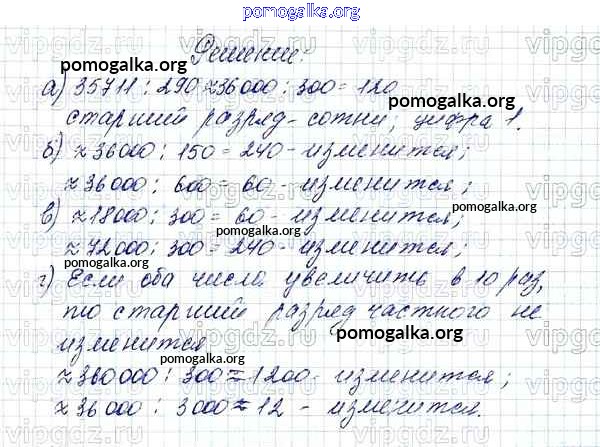 pomogalka.org
Решение:
pomogalka.org
а) 35711 : 290 ≈ 36000 : 300 = 120
pomogalka.org
старший разряд - сотни; цифра 1.
б) ≈ 36000 : 150 = 240 - изменится;
pomogalka.org
≈ 36000 : 600 = 60 - изменится;
в) ≈ 18000 : 300 = 60 - изменится;
pomogalka.org
≈ 72000 : 300 = 240 - изменится;
pomogalka.org
г) Если оба числа увеличить в 10 раз,
то старший разряд частного не
pomogalka.org
изменится
pomogalka.org
≈ 360000 : 300 ≈ 1200 - изменится;
≈ 36000 : 3000 ≈ 12 - изменится.
pomogalka.org